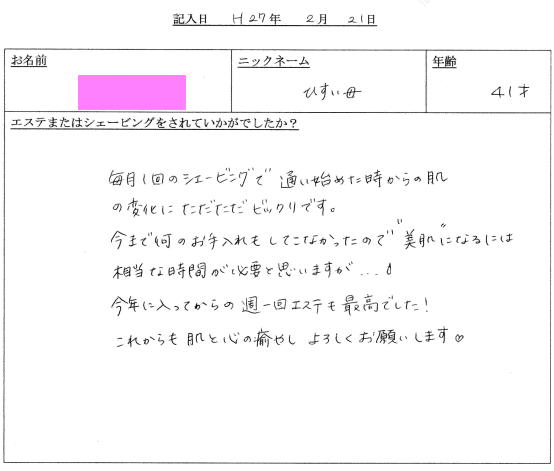 記入日 H27年 2月 21日
お名前 ニックネーム 年齢
ひすい母 41才
エステまたはシェービングをされていかがでしたか？
毎月1回のシェービングで 通い始めた時からの肌
の変化に ただただ ビックリです。
今まで何のお手入れもしてこなかったので"美肌"になるには
相当な時間が必要と思いますが...!
今年に入ってからの 週一回エステも最高でした!
これからも 肌と心の癒やし よろしくお願いします♡